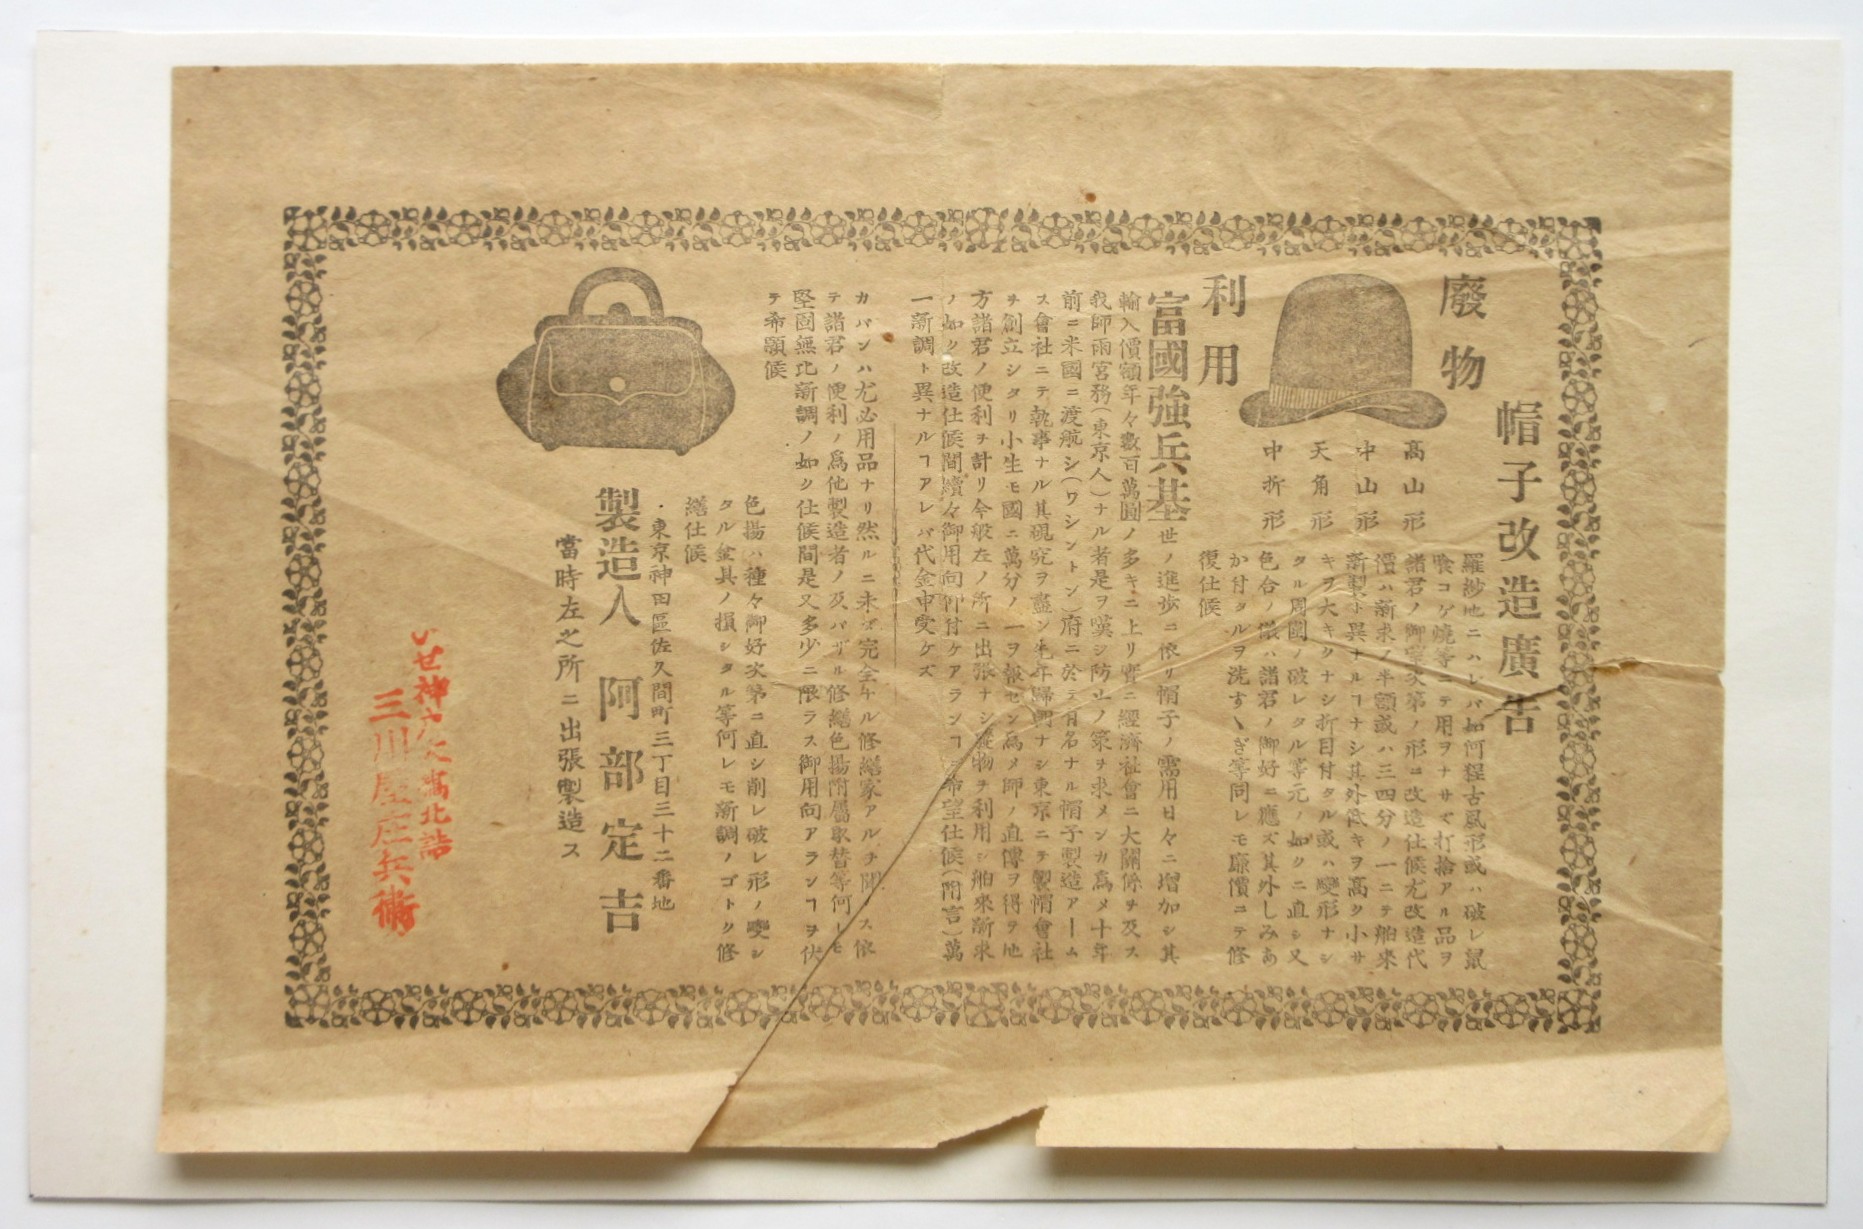 帽子改造廣告
廢物
利用
髙山形
中山形
天角形
中折形
羅紗地ニハレバ如何程古風形或ハ破レ鼠
喰コゲ燒等ニテ用ヲナサズ打捨アル品ヲ
諸君ノ御望次第ノ形ニ改造仕候尤改造代
價ハ新求ノ半額或ハ三四分ノ一ニテ舶來
新製ト異ナルヿナシ其外低キヲ高ク小サ
キヲ大キクナシ折目付タル或ハ變形ナシ
タル周圍ノ破レタル等元ノ如クニ直シ又
色合ノ儀ハ諸君ノ御好ニ應ズ其外しみあ
か付タルヲ洗すゝぎ等同レモ廉價ニテ修
復仕候
富國強兵基世ノ進歩ニ依リ帽子ノ需用日々ニ增加シ其
輸入價額年々數百萬圓ノ多キニ上リ實ニ經濟社會ニ大關係ヲ及ス
我師雨宮 (東京人)ナル者是ヲ嘆シ防止ノ策ヲ求メンカ爲メ十年
前ニ米國ニ渡航シ(ワシントン)府ニ於テ有名ナル帽子製造アーム
ス會社ニテ執事ナル其硯究ヲ盡シ先年歸朝ナシ東京ニテ製帽會社
ヲ創立シタリ小生モ國ニ萬分ノ一ヲ報セン爲メ師ノ直傳ヲ得テ地
方諸君ノ便利ヲ計リ今般左ノ所ニ出張ナシ廢物ヲ利用シ舶來新求
ノ如シ改造仕候間續々御用向仰付ケアランヿヲ希望仕候(附言)萬
一新調ト異ナルヿアレバ代金申受ケズ
カバンハ尤必用品ナリ然ルニ未ダ完全ナル修繕家アルヲ聞カス依
テ諸君ノ便利ノ爲他製造者ノ及バザル修繕色揚附屬取替等何レモ
堅固無比新調ノ如シ仕候間是又多少ニ限ラス御用向アランヿヲ伏
テ希願候
色揚ハ種々御好次第ニ直シ削レ破レ形ノ變シ
タル金具ノ損シタル等何レモ新調ノゴトク修
繕仕候
東京神田區佐久間町三丁目三十二番地
製造人 阿部定吉
當時左之所ニ出張製造ス
いせ神 北詰
三川屋庄兵衛